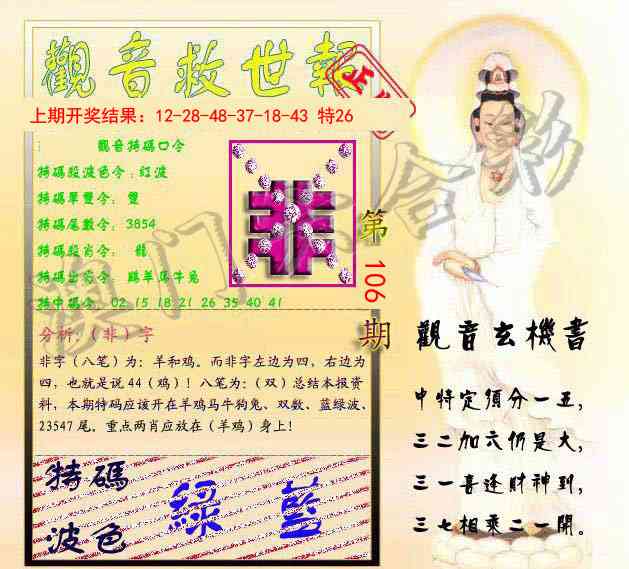 觀音救世報
正
上期开奖结果：12-28-48-37-18-43 特26
觀音特碼口令
特碼段波色令:红波
特碼單雙令： 雙
特碼尾數令：3854
特碼段肖令： 龍
特碼出肖令： 鷄羊馬牛兔
特中碼令：02 15 18 21 26 35 40 41
非
第106期
澳门六合彩
分析:（非）字
非字（八笔）为：羊和鸡。而非字左边为四，右边为
四，也就是说 44（鸡）！八笔为：（双）总结本报资
料，本期特码应该开在羊鸡马牛狗兔、双数、蓝绿波、
23547 尾。重点两肖应放在（羊鸡）身上！
特碼
波色
綠 藍
觀音玄機書
中特定須分一五，
三二加六仍是大，
三一喜逢財神到，
三七相乘二一開。